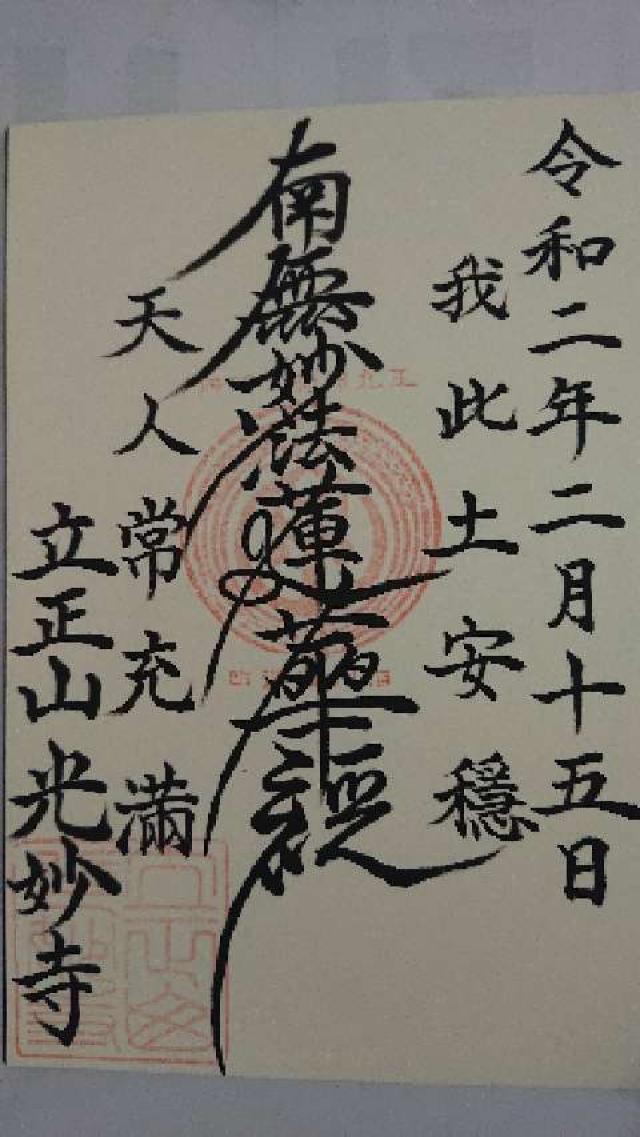 令和二年二月十五日
我此土安穩
南無妙法蓮華経
天人常充満
立正山光妙寺